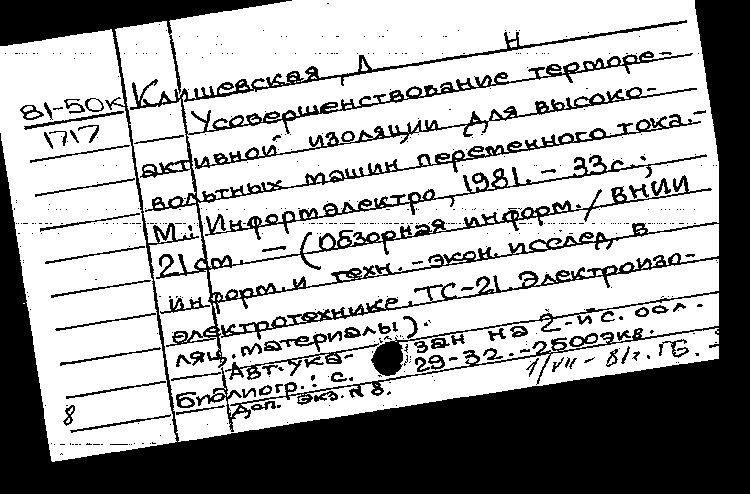 81-50к
1717
Клишевская, Л Н
Усовершенствование терморе-
активной изоляции для высоко-
вольтных машин переменного тока.-
М.: Информэлектро, 1981. - 33с.;
21 см. - (Обзорная информ. / ВНИИ
информ. и техн.-экон. исслед. в
электротехнике. ТС-21. Электроизо-
ляц. материалы).
Авт. ука- зан на 2-й с. обл.
Библиогр.: с. 29-32. - 2500экз.
Доп. экз. N 8. 1/VII - 81г. ГБ. -
8